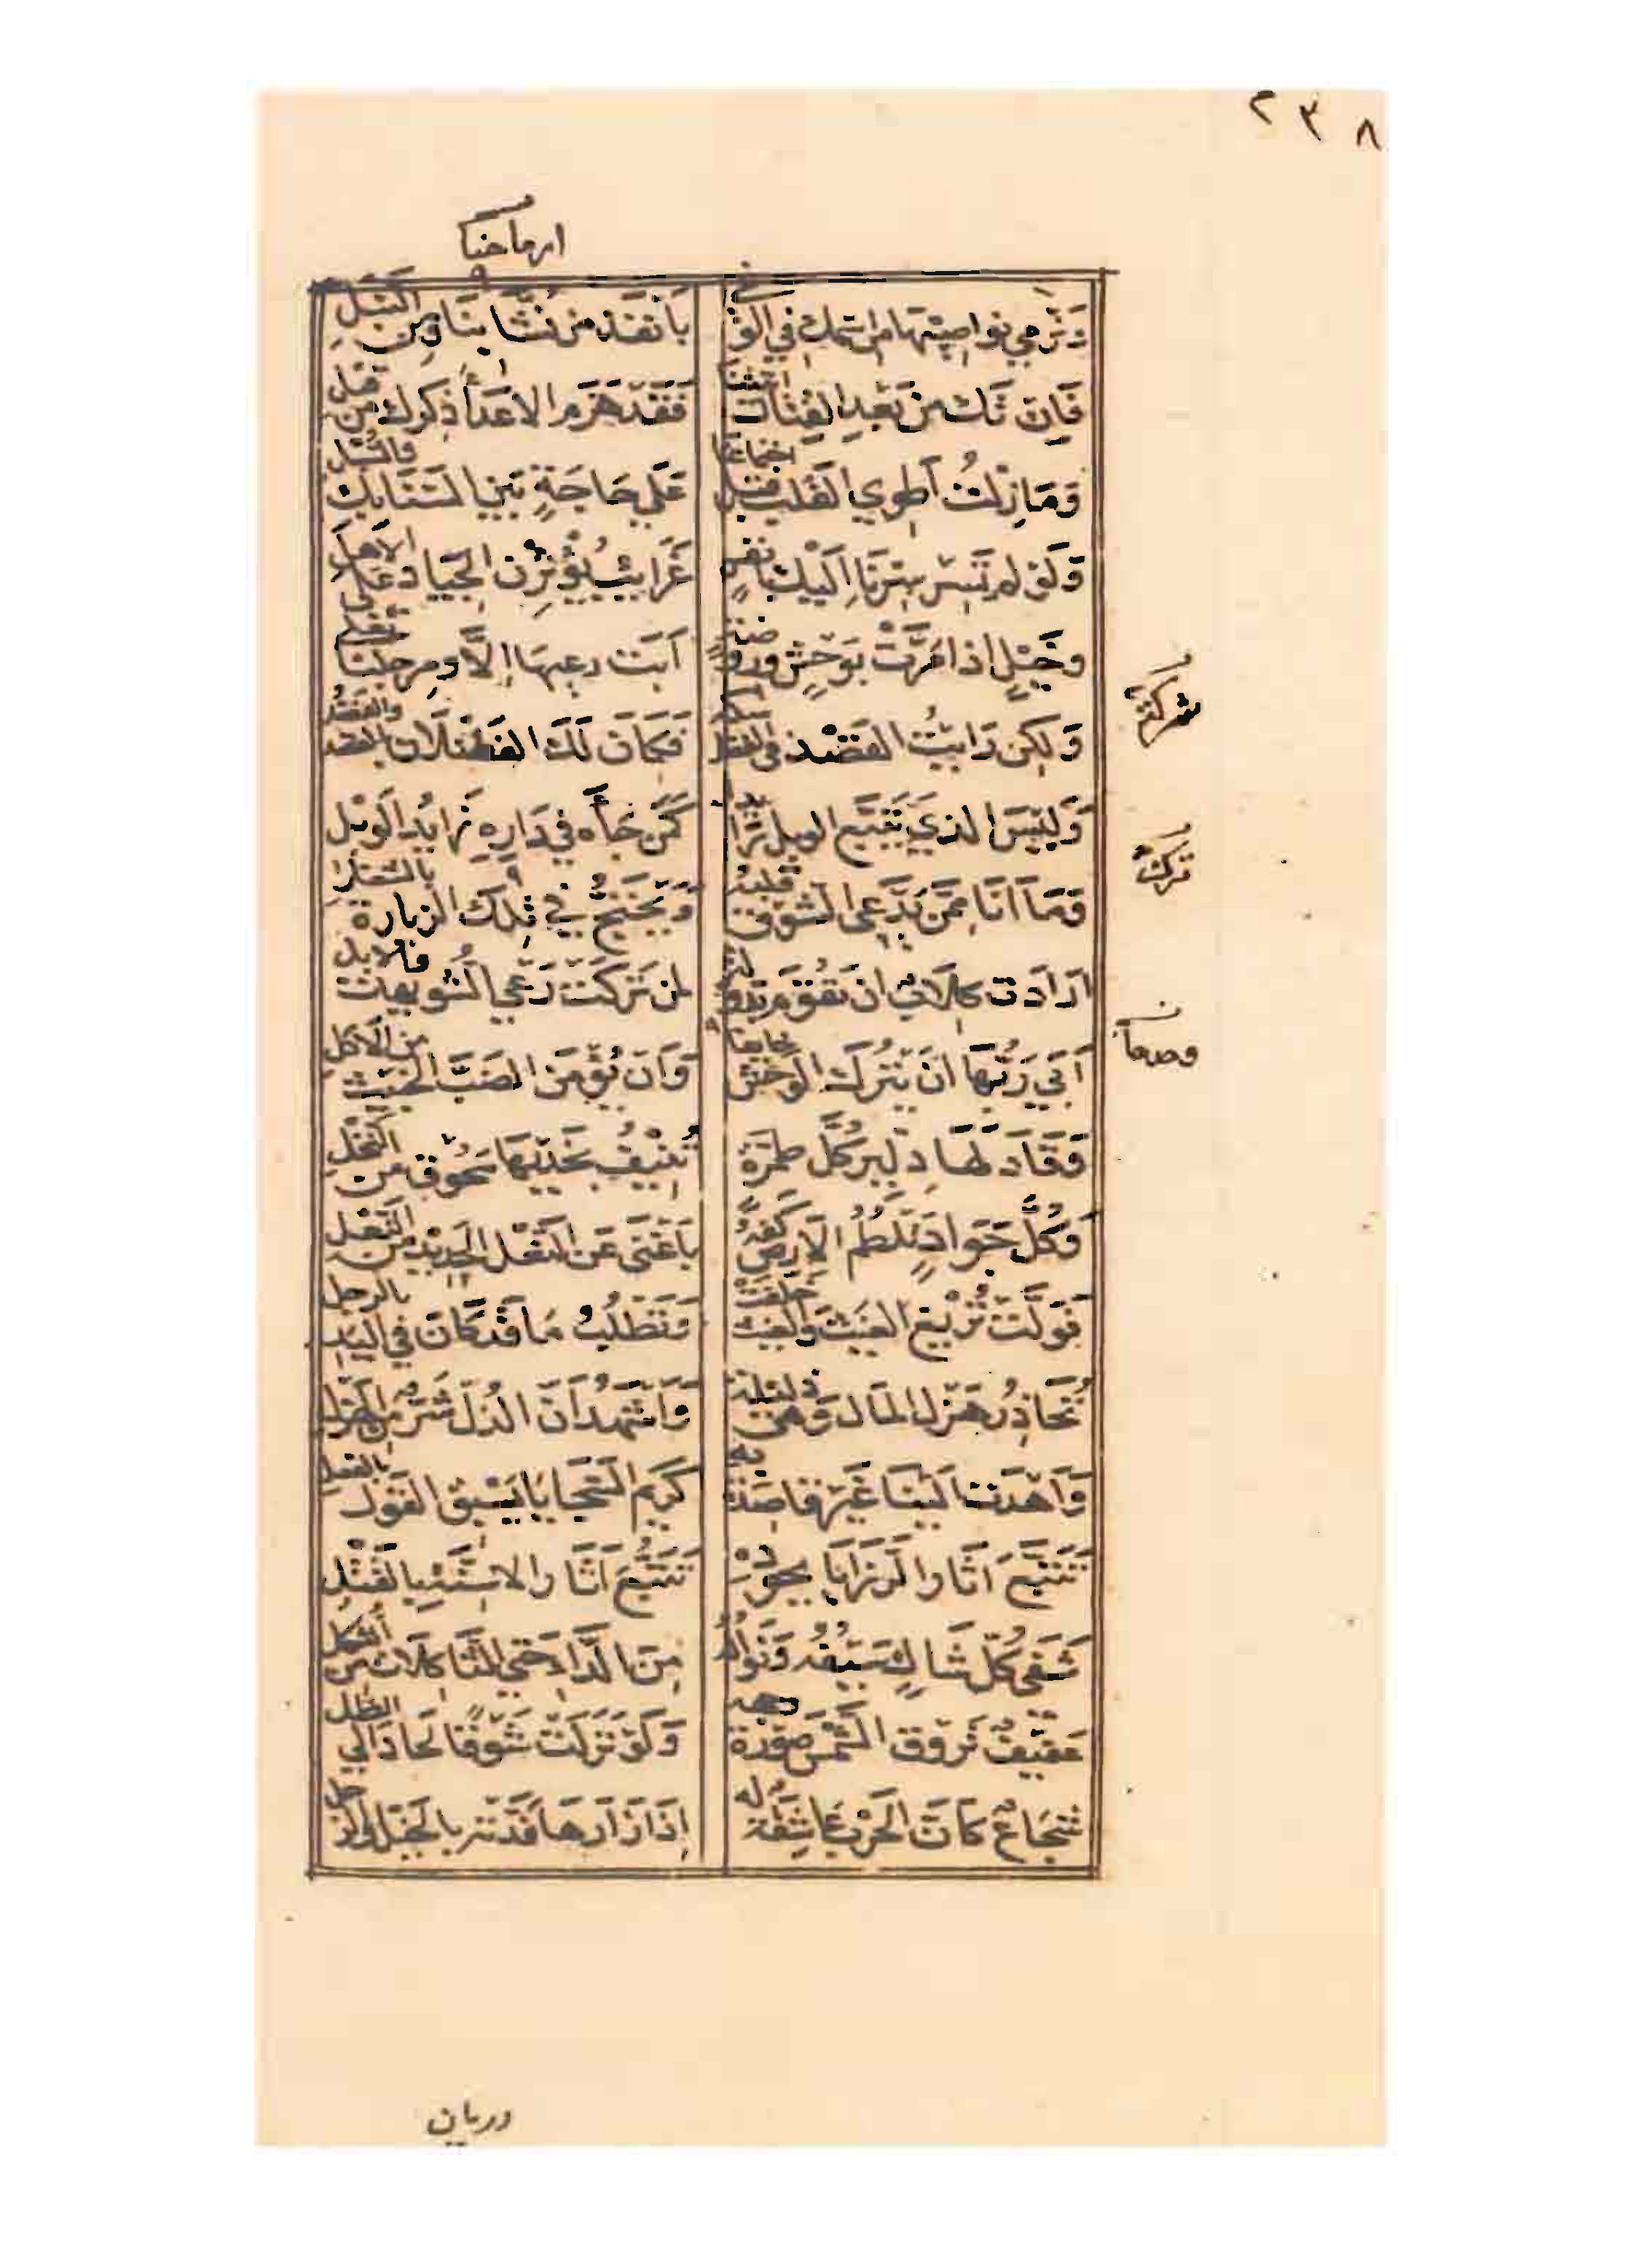 ٢٣٨
وَتَرْمِي نَوَاصِيهَا مِن اسْمِكَ فِي الوَغَى بِأَنْفَذَ مِن نُشَّابِنَا وَمِن النَّبْلِ
فَإِن تَكُ مِن بَعْدِ القِتَالِ أَتَيْتَنَا فَقَدْ هَزَمَ الاعدَاءَ ذِكْرُكَ مِن قَبْلِ
وَمَا زِلْتُ أَطْوِي القَلْبَ قَبْلَ اجْتِمَاعِنَا عَلَى حَاجَةٍ بَيْنَ السَّنَابِكِ وَالسُّبْلِ
وَلَوْ لَم تَسِرْ سِرْنَا إِلَيْكَ بِأَنْفُسٍ غَرَائِبَ يُؤْثِرْنَ الجِيَادَ عَلَى الأهْلِ
وَخَيْلٍ إذا مَرَّتْ بِوَحْشٍ وَرَوْضَةٍ أَبَتْ رَعْيَهَا إِلَّا وَمِرْجَلُنَا يَغْلِي
وَلَكِن رَأَيْتُ القَصْدَ فِي الفَضْلِ شركة فَكَانَ لَكَ الفَضْلَانِ بِالقَصْدِ وَالفَضْلِ
شركة
وَلَيْسَ الذي يَتَّبَّعُ الوَبْلَ رَائِدًا كَمَن جَاءَهُ فِي دَارِهِ رَائِدُ الوَبْلِ
وَمَا أَنَا مِمَّن يَدَّعِي الشَّوْقَ قَلْبُهُ وَيَحْتَجُّ فِي تَرْكِ الزِيَارَةِ بِالشُّغْلِ
ترك
أَرَادَت كِلَابٌ أن تَقُومَ بِدَوْلَةٍ لِمَن تَرَكَتْ رَعْيَ الشُّوَيْهَاتِ وَالابلِ
أَبَى رَبُّهَا أَن يَتْرُكَ الوَحْشَ وَحْدَهَا وَأَن يُؤْمِنَ الضَّبَّ الخَبِيثَ مِنَ الأَكْلِ
وَقَادَ لَهَا دِلِّيرُ كُلَّ طِمِرَّةٍ تُنِيفُ بِخَدَّيْهَا سَحُوقٌ مِن النَّخْلِ
وَكُلَّ جَوَادٍ تَلْطِمُ الأَرْضَ كَفُّهُ بِأَغْنَى عَنِ النَّعْلِ الحَدِيدِ مِن النَّعْلِ
فَوَلَّتْ تُرِيغُ الغَيْثَ وَالغَيْثَ خَلَّفَتْ وَتَطْلُبُ مَا قَدْ كَانَ فِي اليَدِ بِالرِّجْلِ
تُحَاذِرُ هَزْلَ المَالِ وَهْيَ ذَلِيلَةٌ وَأَشْهَدُ أَنَّ الذُّلَّ شَرٌّ مِنَ الهَزْلِ
وَأَهْدَتْ إِلَيْنَا غَيْرَ قَاصِدَةٍ بِهِ كَرِيمَ السَّجَايَا يَسْبِقُ القَوْلَ بِالفِعْلِ
تَتَبَّعَ آثَارَ الرَّزَايَا بِجُودِهِ تَتَبُّعَ آثَارِ الاسِنَّةِ بِالفُتْلِ
شَفَى كُلَّ شَاكٍ سَيْفُهُ وَنَوَالُهُ مِنَ الدَّاءِ حَتَّى الثَّاكِلَاتِ مِنَ الثُّكْلِ
عَفِيفٌ تَرُوقُ الشَّمْسَ صُورَةُ وَجْهِهِ وَلَوْ نَزَلَتْ شَوْقًا لَحَادَ إِلَى الظِّلِّ
شُجَاعٌ كَأَنَّ الحَرْبَ عَاشِقَةٌ لَهُ إِذَا زَارَهَا فَدَّتْهُ بِالخَيْلِ وَالرَّجْلِ
وريان